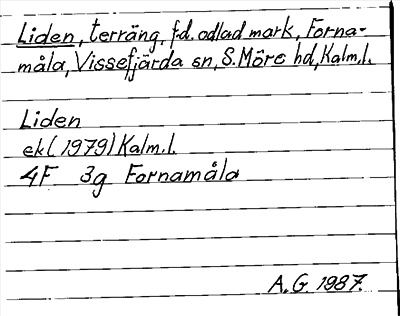 Liden, terräng, f.d. odlad mark, Forna-
måla, Vissefjärda sn, S. Möre hd, Kalm.l.
Liden
ek (1979) Kalm.l.
4F 3g Fornamåla
A.G. 1987.